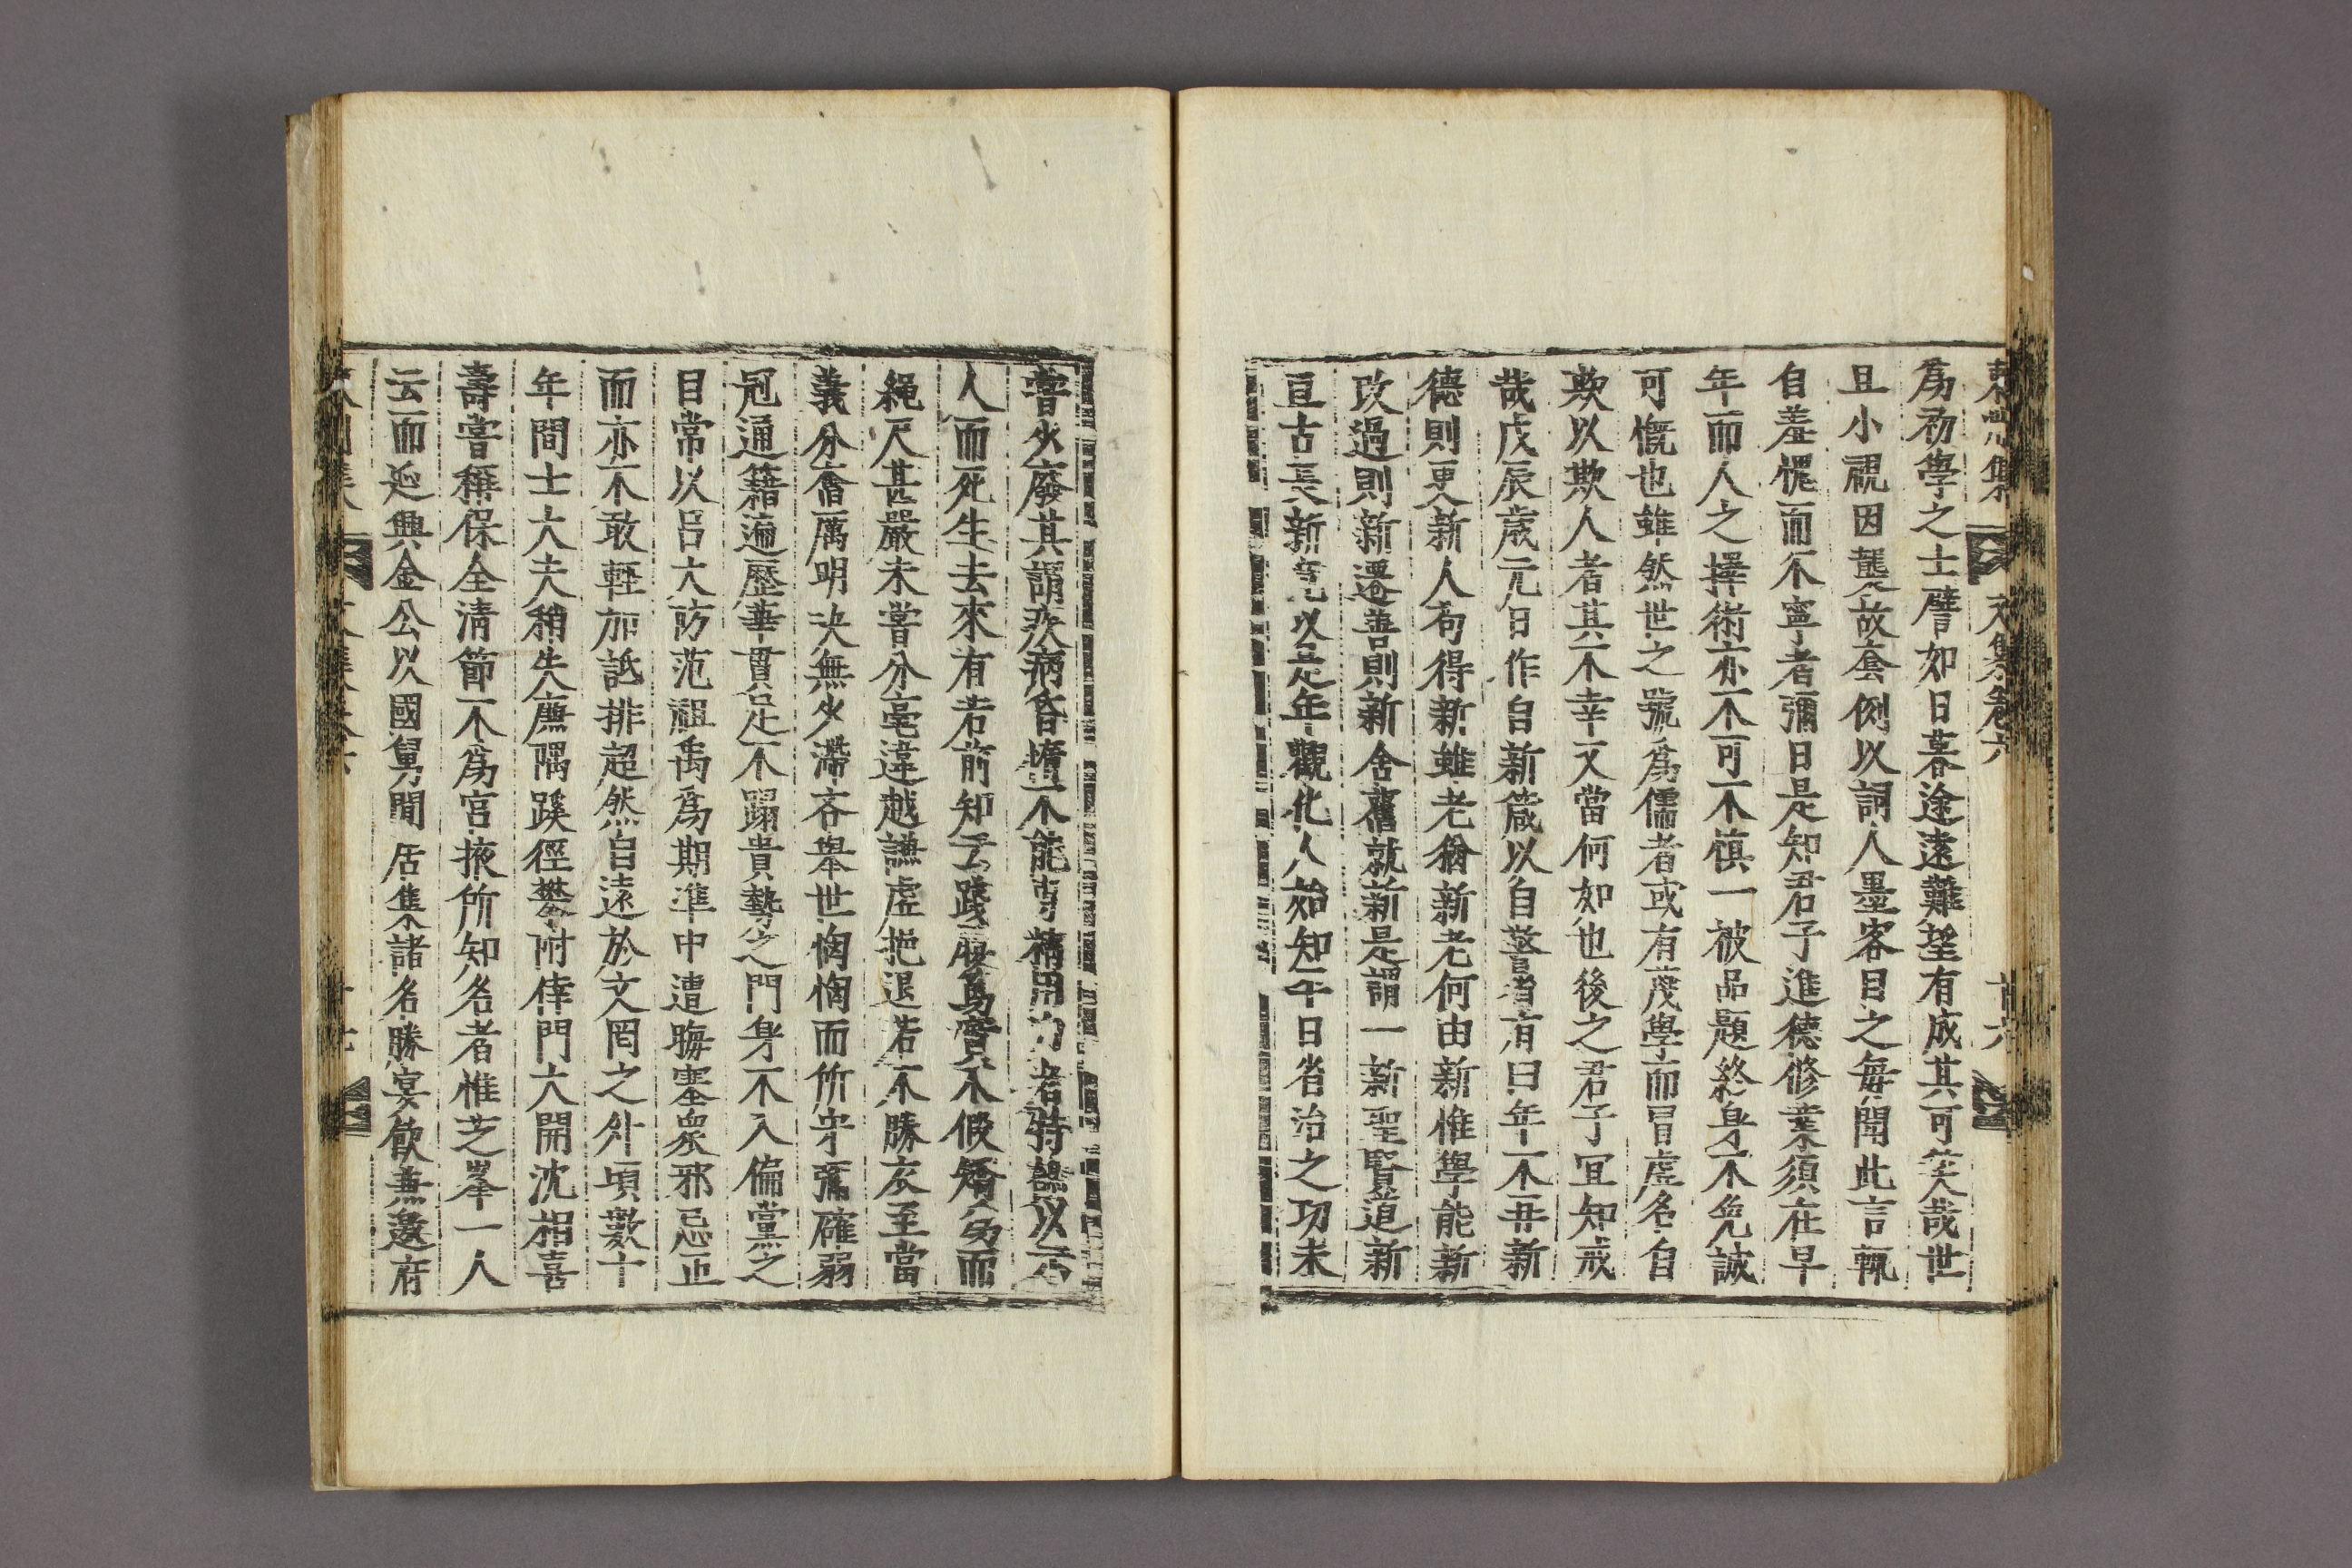 集 文集卷六 廿六
爲初學之士譬如日暮途遠難望有成其可笑哉世
且小視因襲故套例以詞人墨客目之每聞此言輒
自羞愧而不寧者彌日是知君子進德修業須在早
年而人之擇術亦不可不愼一被品題終身不免誠
可慨也雖然世之號爲儒者或有蔑學而冒虛名自
欺以欺人者其不幸又當何如也後之君子宜知戒
哉戊辰歲元日作自新箴以自警者有曰年不再新
德則更新人苟得新雖老猶新老何由新惟學能新
改過則新遷善則新舍舊就新是謂一新聖賢道新
亘古長新竟以是年觀化人始知平日省治之功未
嘗少廢其謂疾病昏憒不能專精用力者特謙以示
人而死生去來有若前知云踐履篤實不假矯爲而
繩尺甚嚴未嘗分毫違越謙虛挹退若不勝衣至當
義分處厲明决無少滯吝擧世恟恟而所守彌確弱
冠通籍遍歷華貫足不躡貴勢之門身不入偏黨之
目常以呂大防范祖禹爲期準中遭晦塞衆邪忌正
而亦不敢輕加詆排超然自遠於文罔之外頃數十
年間士大夫稍失廉隅蹊徑攀附倖門大開沈相喜
壽嘗稱保全淸節不爲宮掖所知名者惟芝峯一人
云而延興金公以國舅閒居集諸名勝宴飮無邀府